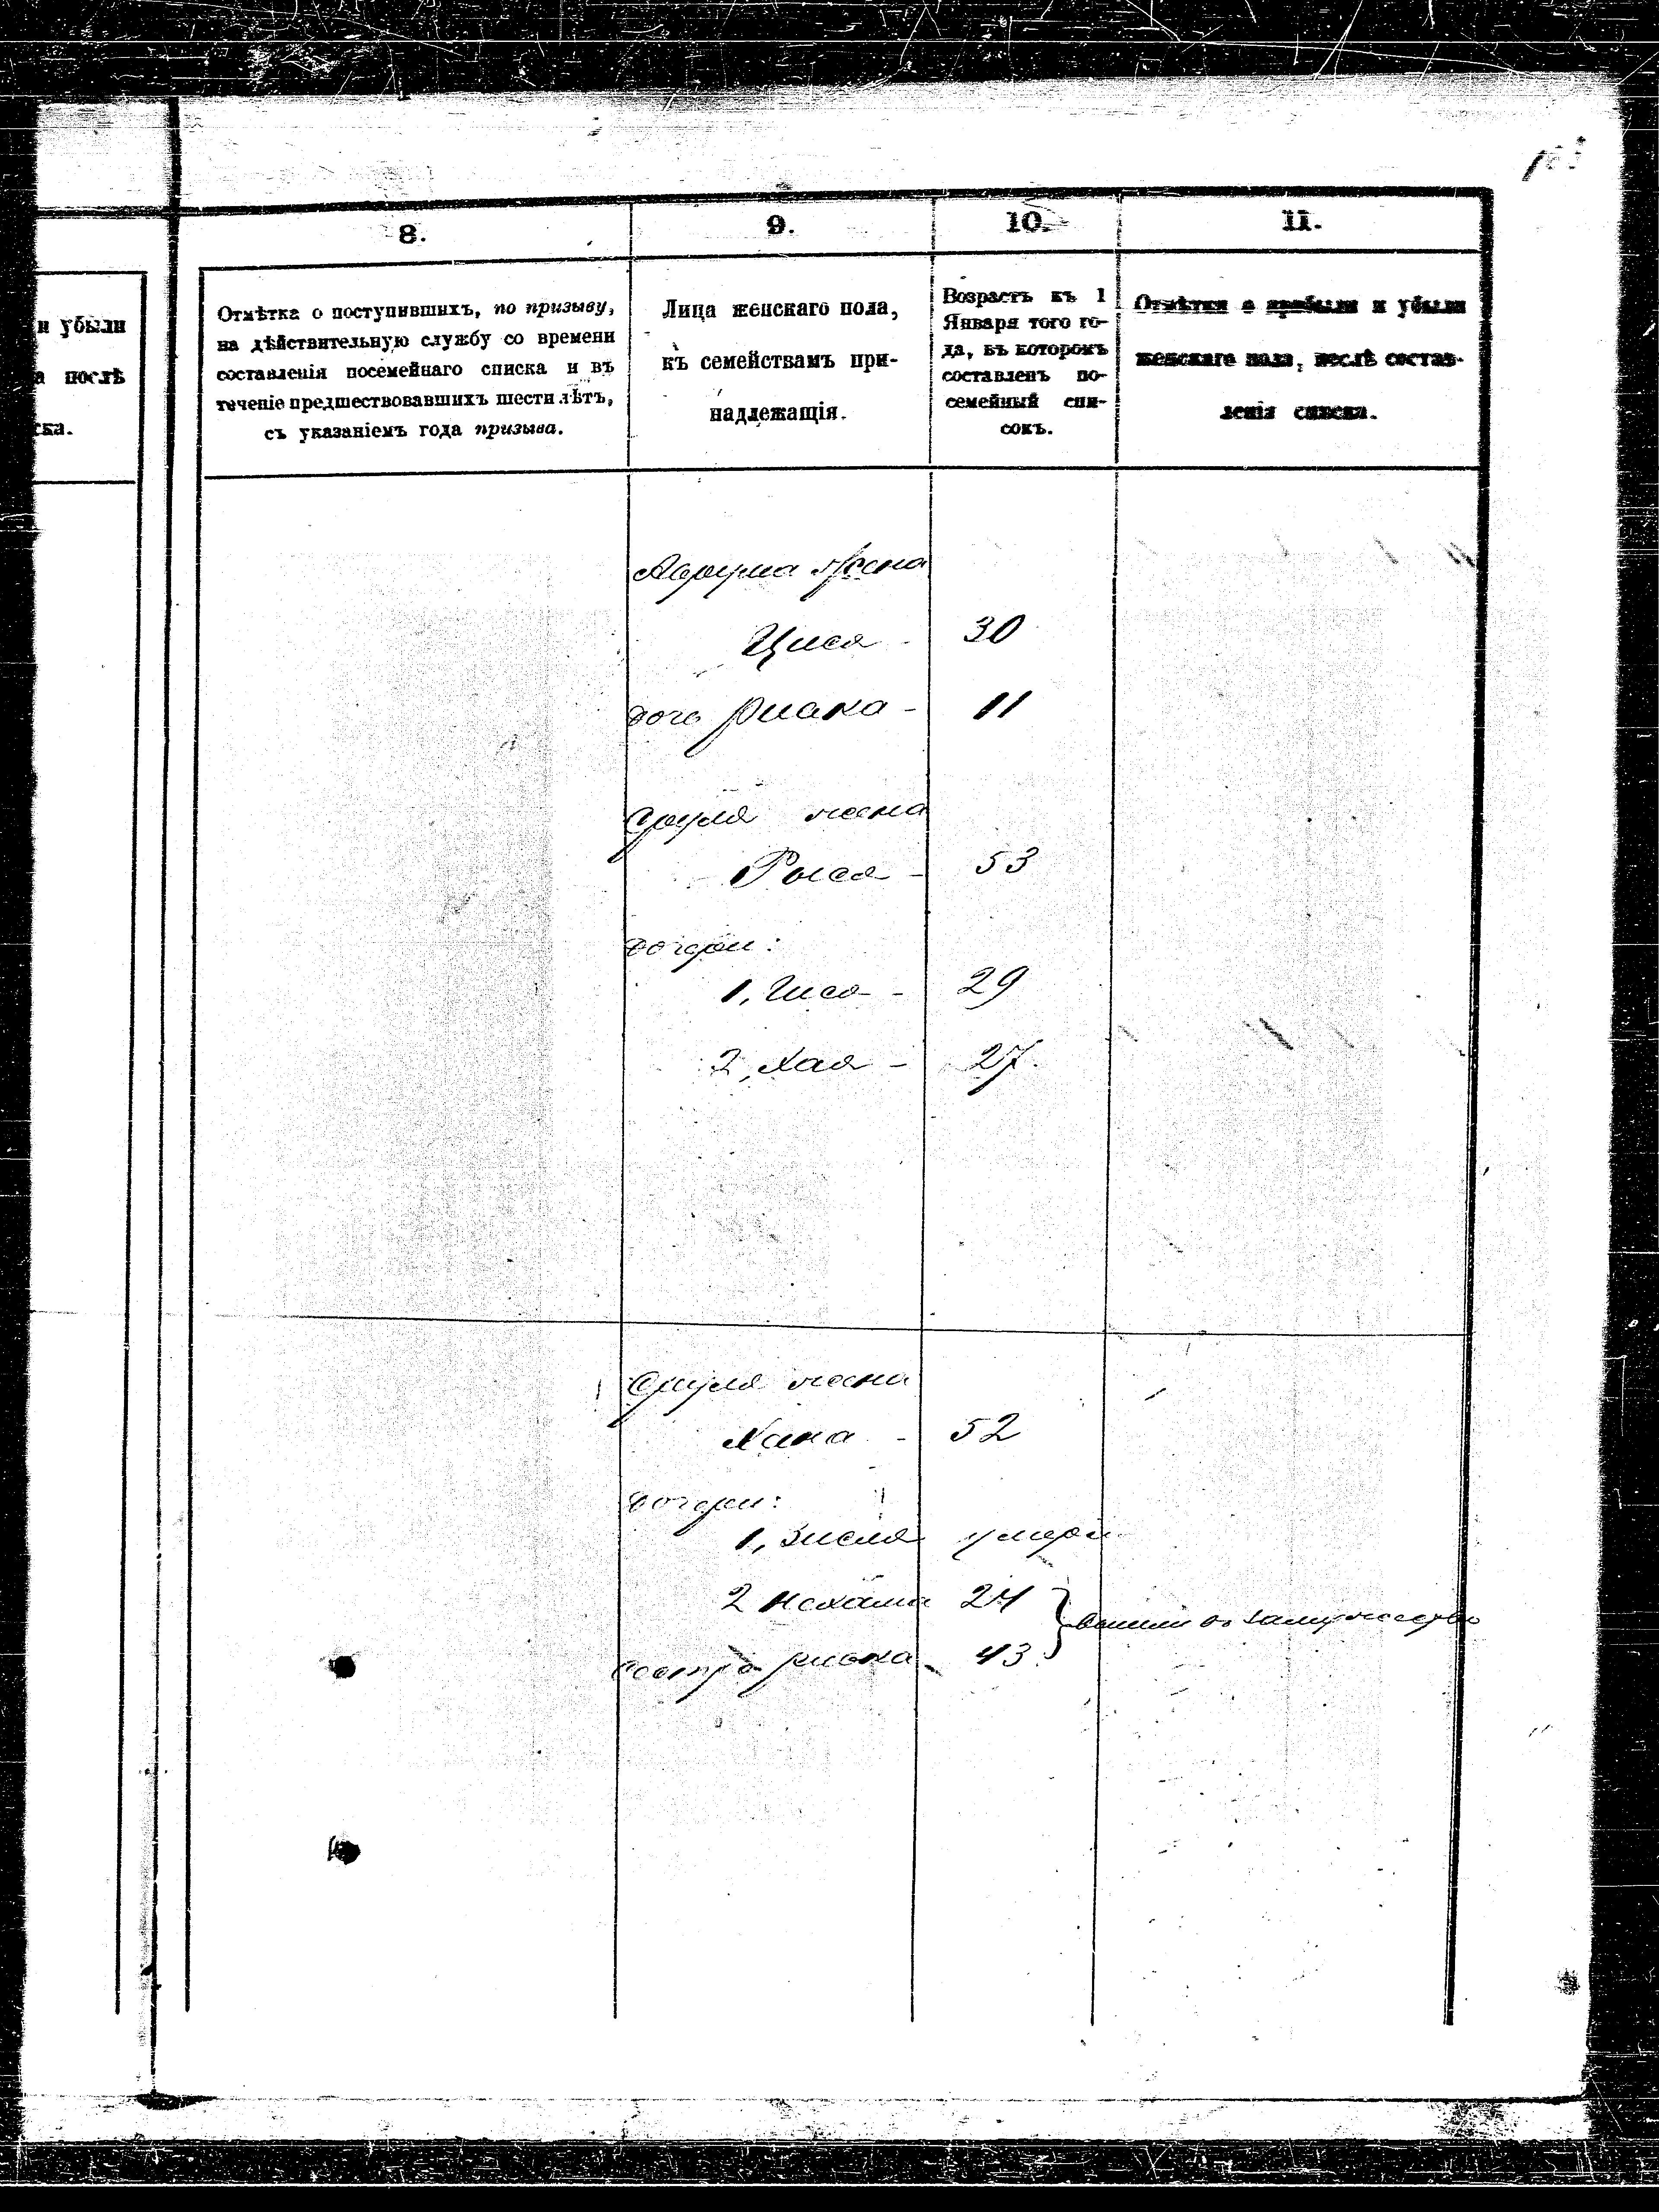 163
8.
9.
10.
11.
и убыли
а послѣ
ска.
Отмѣтка о поступившихъ, по призыву,
на дѣйствительную службу со времени
составленія посемейнаго списка и въ
теченіе предшествовавшихъ шести лѣтъ,
съ указаніемъ года призыва.
Лица женскаго пола,
къ семействамъ при-
надлежащія.
Возрастъ къ 1
Января того го-
да, въ которомъ
составленъ по-
семейный спи-
сокъ.
Отмѣтки о прибыли и убыли
женскаго пола, послѣ состав-
ленія списка.
Аврума жена
Цися - 30
дочь Риака - 11
Сруля жена
Рыся - 53
дочери:
1, Гися - 29
2, Хая - 27.
Сруля жена
Хана - 52
дочери:
1, Зисля умерла
2 Нехама 24
вышли въ замужество
сестра Ривка 43